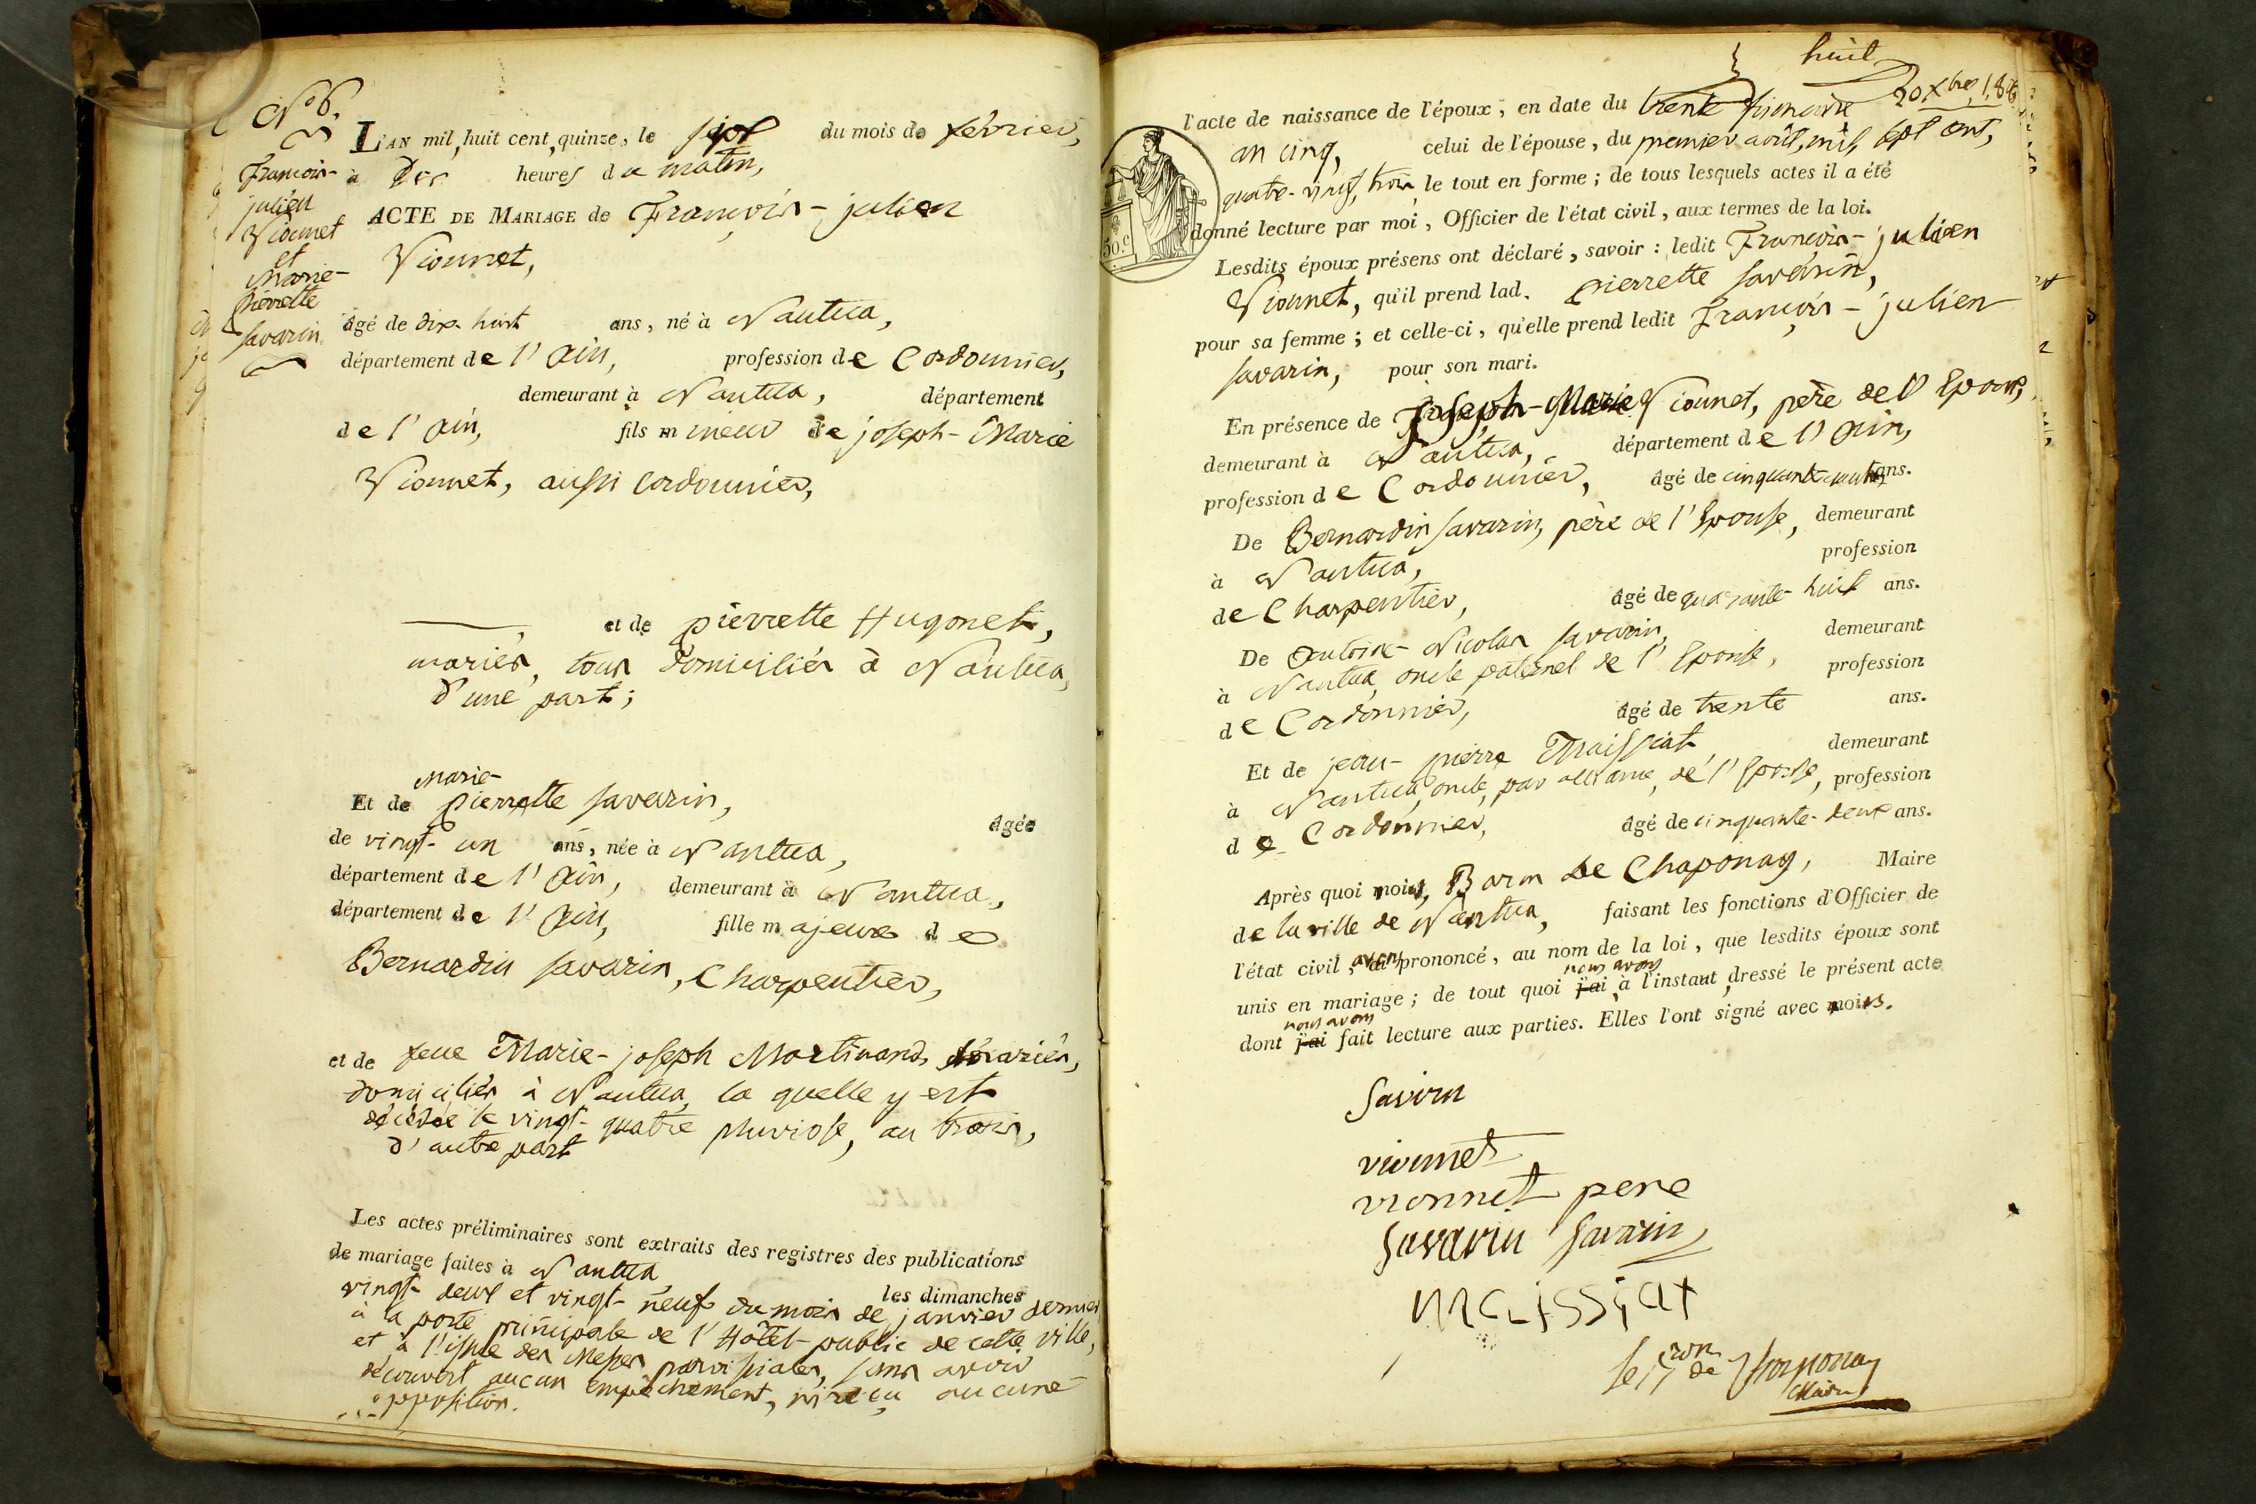 N° 6.
François-
julien
Vionnet
et
Marie-
pierrette
Savarin
L'AN mil, huit cent, quinze, le sept du mois de février,
à Dix heures du matin,
ACTE DE MARIAGE de François-julien
Vionnet,
âgé de dix-huit ans, né à Nantua,
département de l'Ain, profession de Cordonnier,
demeurant à Nantua, département
de l'Ain, fils mineur de joseph-Marie
Vionnet, aussi Cordonnier,
et de pierrette Hugonet,
mariés, tous domiciliés à Nantua,
d'une part;
Marie-
Et de pierrette Savarin,
âgée
de vingt-un ans, née à Nantua,
département de l'Ain, demeurant à Nantua,
département de l'Ain, fille majeure de
Bernardin Savarin, Charpentier,
et de feue Marie-joseph Martinand, mariés,
domiciliés à Nantua, la quelle y est
décédée le vingt-quatre pluviose, an trois,
d'autre part
Les actes préliminaires sont extraits des registres des publications
de mariage faites à Nantua les dimanches
vingt-deux et vingt-neuf du mois de janvier dernier
à la porte principale de l'Hôtel public de cette ville,
et à l'issue des Messes paroissiales, sans avoir
découvert aucun empêchement, ni reçu aucune
opposition.
huit
l'acte de naissance de l'époux, en date du trente frimaire
an cinq, celui de l'épouse, du premier août, mil, sept cent,
quatre-vingt, trois, le tout en forme; de tous lesquels actes il a été
donné lecture par moi, Officier de l'état civil, aux termes de la loi.
50.c
Lesdits époux présens ont déclaré, savoir: ledit François-julien
Vionnet, qu'il prend lad. pierrette Savarin,
pour sa femme; et celle-ci, qu'elle prend ledit François-julien
Savarin, pour son mari.
En présence de Joseph-Marie Vionnet, père de l'Epoux,
demeurant à Nantua, département de l'Ain,
profession de Cordonnier, âgé de cinquante ans.
De Bernardin Savarin, père de l'Epouse, demeurant
à Nantua, profession
de Charpentier, âgé de quarante-huit ans.
De Antoine-Nicolas Savarin, demeurant
à Nantua, oncle paternel de l'Epouse, profession
de Cordonnier, âgé de trente ans.
Et de jean-pierre Maissiat demeurant
à Nantua, oncle, par alliance, de l'Epouse, profession
de Cordonnier, âgé de cinquante-deux ans.
Après quoi nous, Baron de Chaponay, Maire
de la ville de Nantua, faisant les fonctions d'Officier de
l'état civil, avons prononcé, au nom de la loi, que lesdits époux sont
nous avons
unis en mariage; de tout quoi j'ai, à l'instant, dressé le présent acte
nous avons
dont j'ai fait lecture aux parties. Elles l'ont signé avec nous.
Savarin
vionnet
vionnet pere
Savarin Savarin
maissiat
le Bron de Chaponay
Maire